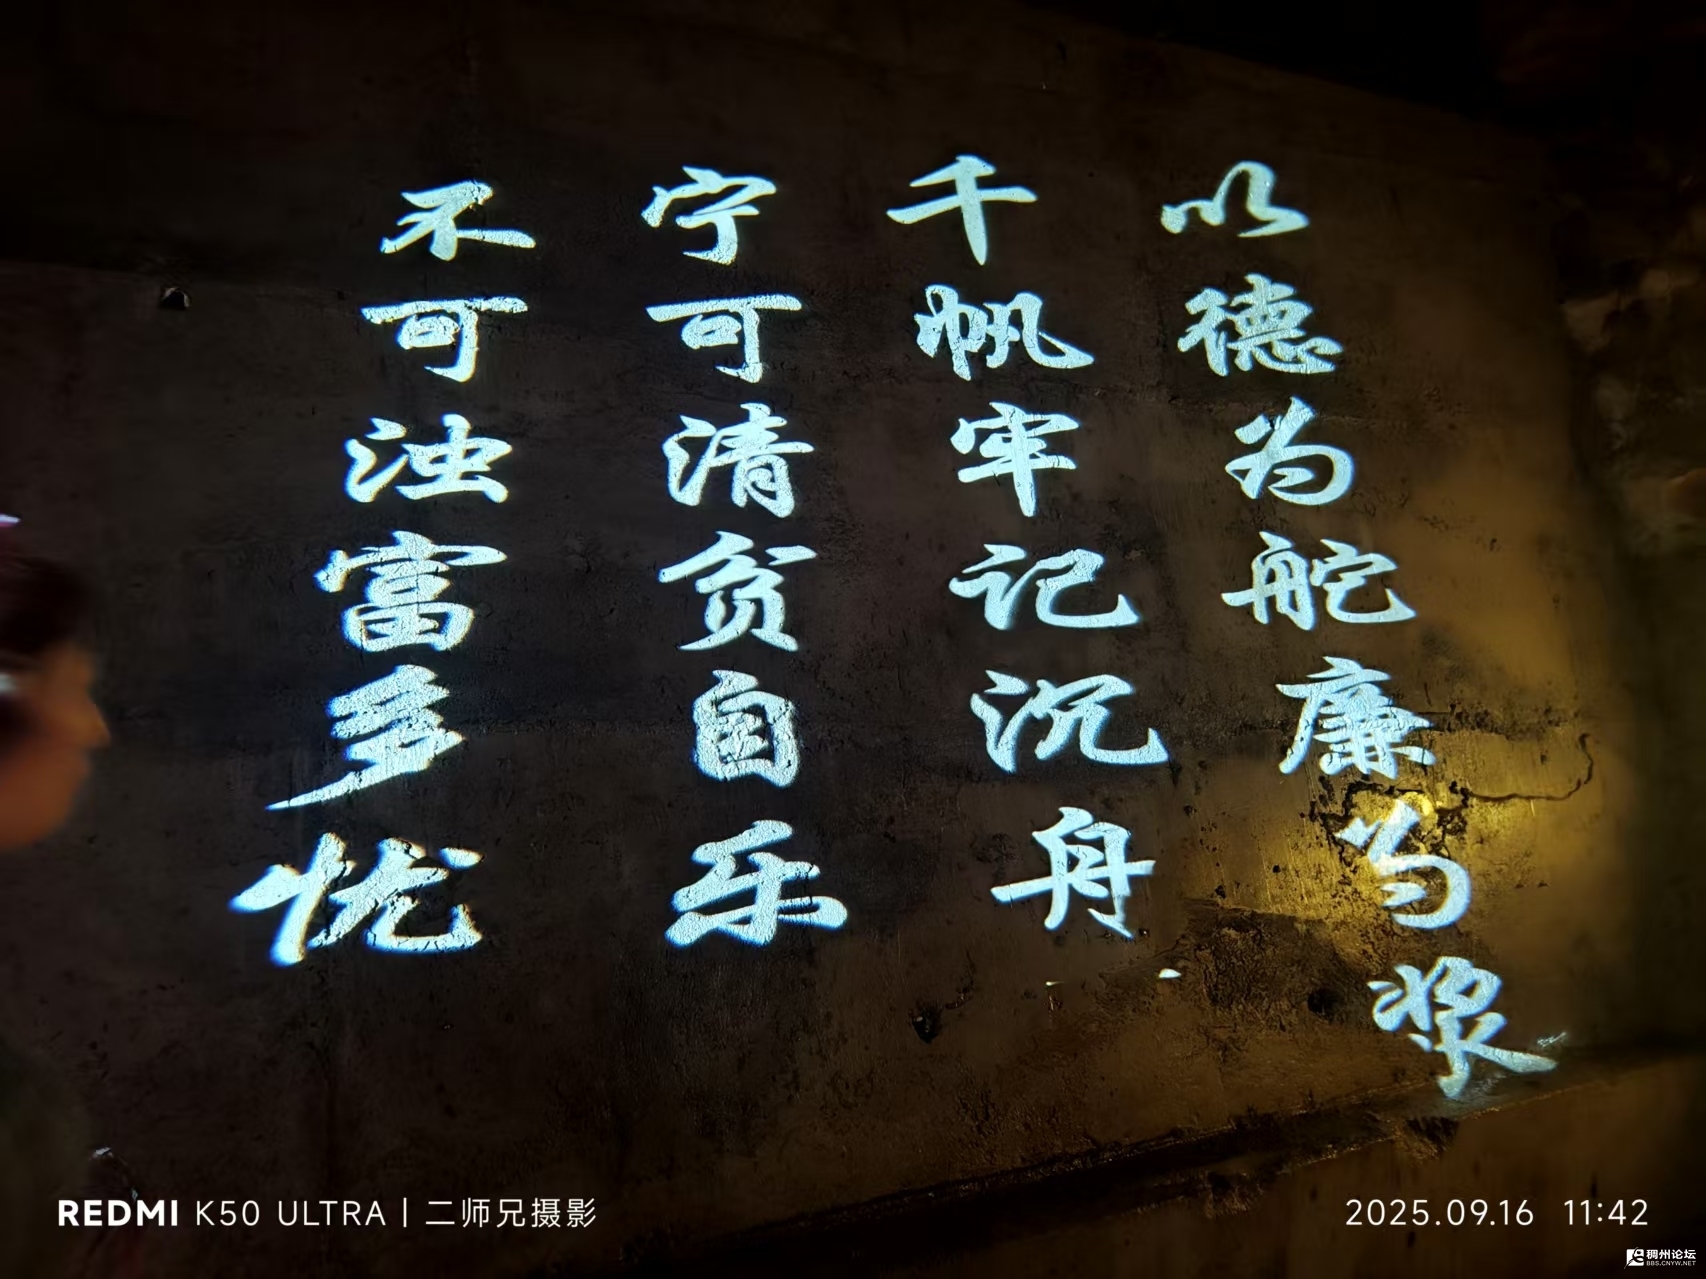 以德为舵廉为浆
千帆牢记沉舟
宁可清贫自乐
不可浊富多忧
REDMI K50 ULTRA | 二师兄摄影
2025.09.16 11:42
稠州论坛
BBS.CNYW.NET